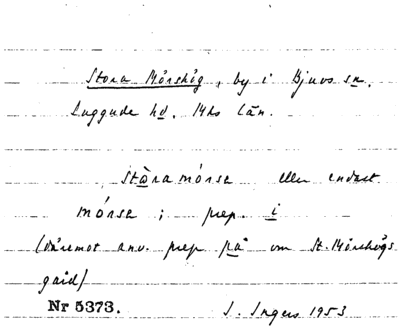 Stora Mörshög, by i Bjuvs sn.
Luggude hd. Mhs län.
stæ̀ra mórsa eller endast
mórsa ; prep. i
(däremot anv. prep på om St. Mörshögs
gård)
Nr 5373. I. Ingers 1953